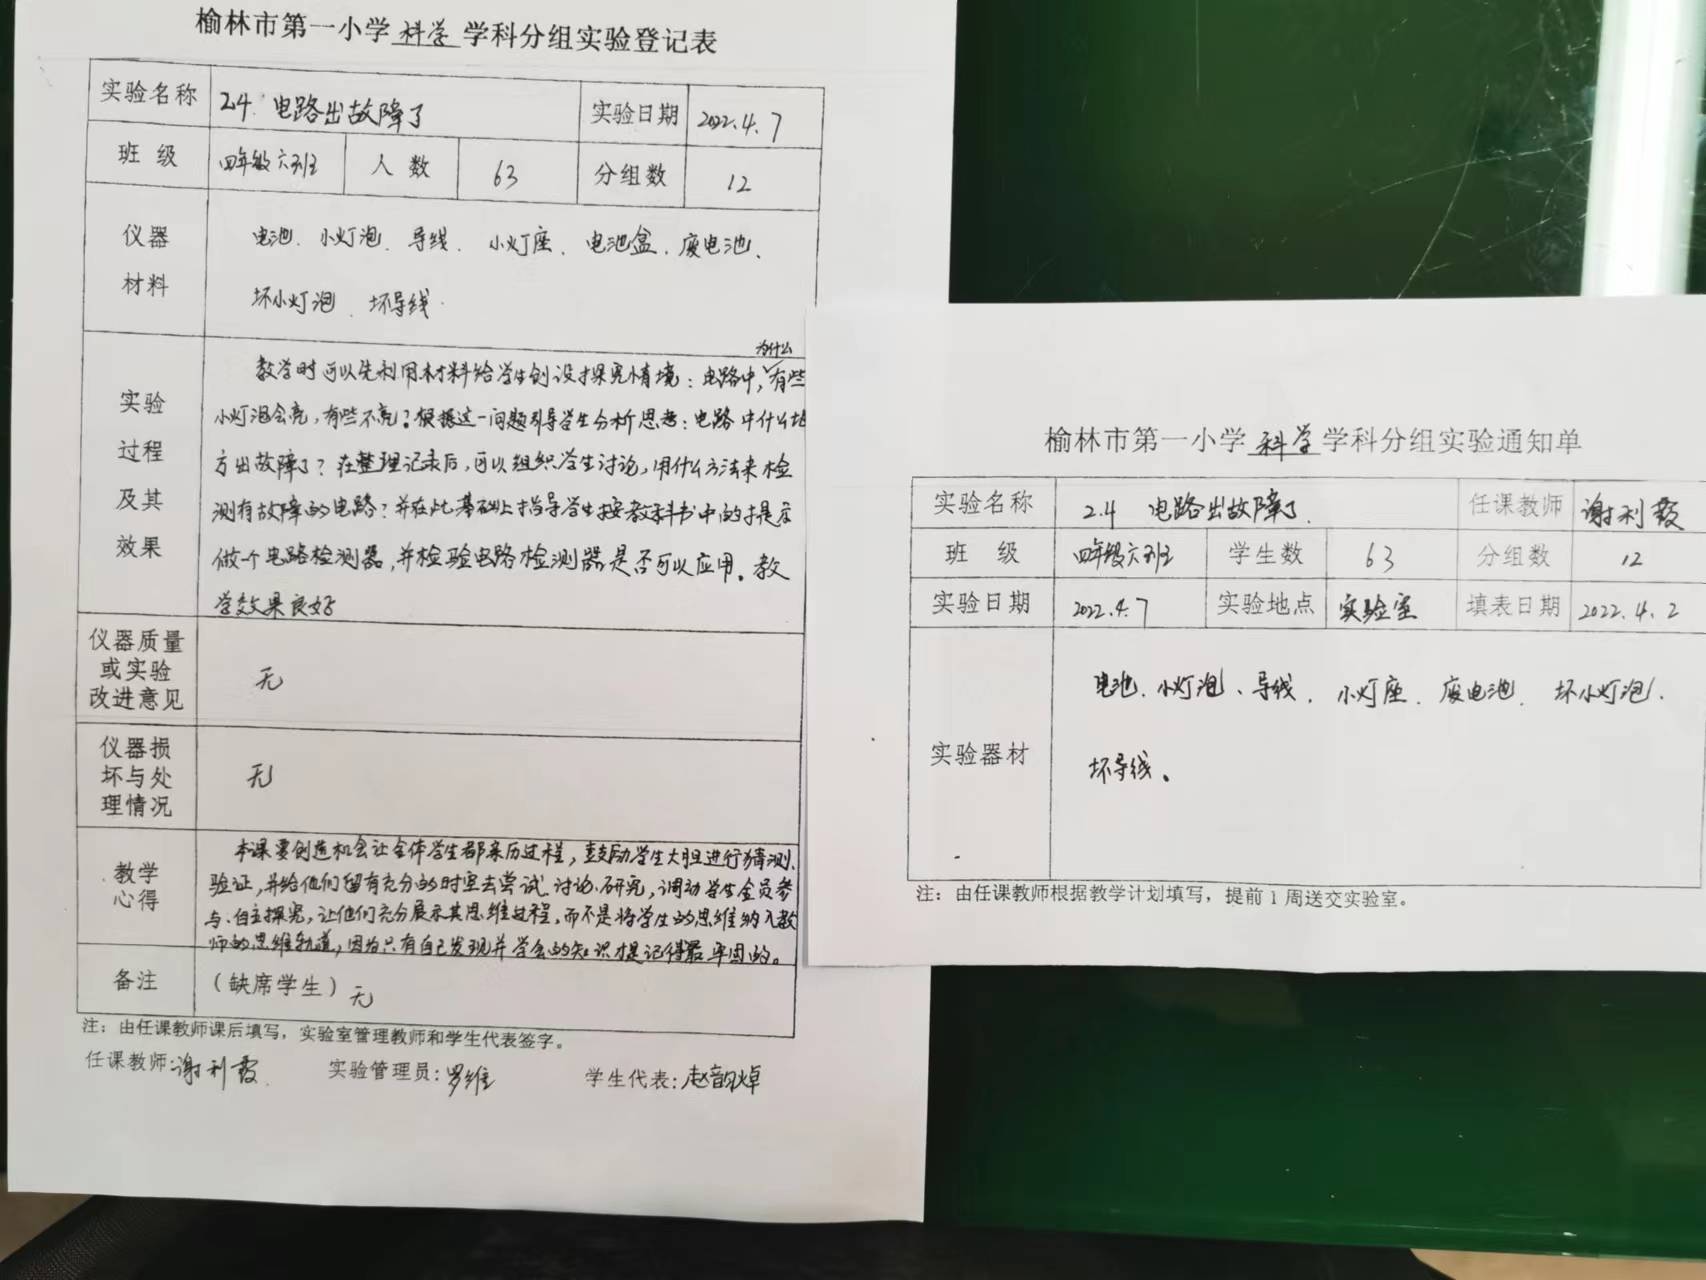 榆林市第一小学 科学 学科分组实验登记表
实验名称 2.4 电路出故障了 实验日期 2022.4.7
班 级 四年级六班 人 数 63 分组数 12
仪器
材料
电池、小灯泡、导线、小灯座、电池盒、废电池、
坏小灯泡、坏导线.
实验
过程
及其
效果
为什么
教学时可以先利用材料给学生创设探究情境:电路中,有些
小灯泡会亮,有些不亮?根据这一问题引导学生分析思考:电路中什么地
方出故障了?在整理记录后,可以组织学生讨论,用什么方法来检
测有故障的电路?并在此基础上指导学生按教科书中的提示
做一个电路检测器,并检验电路检测器是否可以应用。教
学效果良好
仪器质量
或实验
改进意见
无
仪器损
坏与处
理情况
无
教学
心得
本课要创造机会让全体学生都亲历过程,鼓励学生大胆进行猜测、
验证,并给他们留有充分的时空去尝试、讨论、研究,调动学生全员参
与、自主探究,让他们充分展示其思维过程,而不是将学生的思维纳入教
师的思维轨道,因为只有自己发现并学会的知识才是记得最牢固的。
备注 (缺席学生) 无
注:由任课教师课后填写,实验室管理教师和学生代表签字。
任课教师:谢利霞 实验管理员:罗维 学生代表:赵韵焯
榆林市第一小学 科学 学科分组实验通知单
实验名称 2.4 电路出故障了. 任课教师 谢利霞
班 级 四年级六班 学生数 63 分组数 12
实验日期 2022.4.7 实验地点 实验室 填表日期 2022.4.2
实验器材
电池、小灯泡、导线、小灯座、废电池、坏小灯泡、
坏导线。
注:由任课教师根据教学计划填写,提前1周送交实验室。